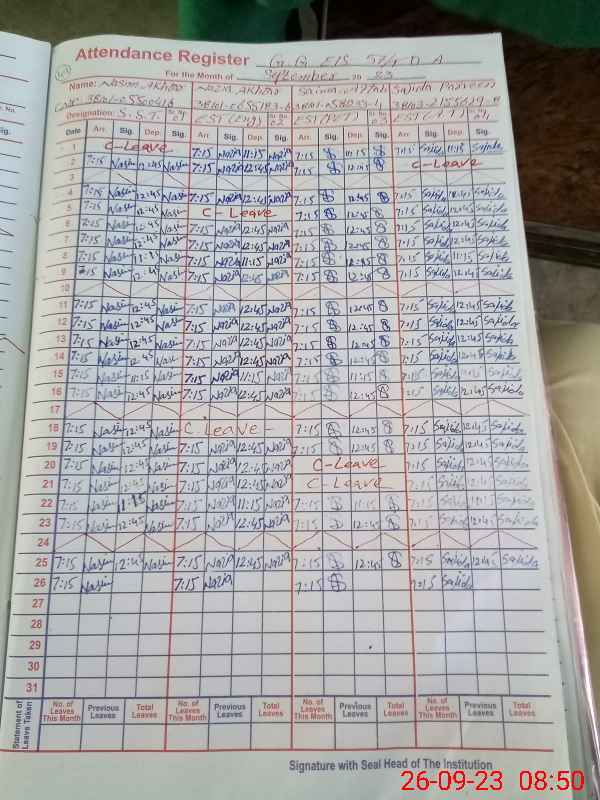 Attendance Register G.G E/S 57/4 D A
For the Month of September 20 23
Name: Nasim Akhtar Nazia Akhtar Saima Sajida Parveen
Designation: S.S.T EST
Date Arr. Sig. Dep. Sig. Arr. Sig. Dep. Sig. Arr. Sig. Dep. Sig. Arr. Sig. Dep. Sig.
1 C-Leave 7:15 Nazia 11:15 Nazia 7:15 11:15 7:15 Sajida 11:15 Sajida
2 7:15 Nasim 12:45 Nasim 7:15 Nazia 12:45 Nazia 7:15 12:45 C-Leave
3
4 7:15 Nasim 12:45 Nasim 7:15 Nazia 12:45 Nazia 7:15 12:45 7:15 Sajida 12:45 Sajida
5 7:15 Nasim 12:45 Nasim C-Leave 7:15 12:45 7:15 Sajida 12:45 Sajida
6 7:15 Nasim 12:45 Nasim 7:15 Nazia 12:45 Nazia 7:15 12:45 7:15 Sajida 12:45 Sajida
7 7:15 Nasim 12:45 Nasim 7:15 Nazia 12:45 Nazia 7:15 12:45 7:15 Sajida 12:45 Sajida
8 7:15 Nasim 11:15 Nasim 7:15 Nazia 11:15 Nazia 7:15 7:15 Sajida 11:15 Sajida
9 7:15 Nasim 12:45 Nasim 7:15 Nazia 12:45 Nazia 7:15 12:45 7:15 Sajida 12:45 Sajida
10
11 7:15 Nasim 12:45 Nasim 7:15 Nazia 12:45 Nazia 7:15 12:45 7:15 Sajida 12:45 Sajida
12 7:15 Nasim 12:45 Nasim 7:15 Nazia 12:45 Nazia 7:15 12:45 7:15 Sajida 12:45 Sajida
13 7:15 Nasim 12:45 Nasim 7:15 Nazia 12:45 Nazia 7:15 12:45 7:15 Sajida 12:45 Sajida
14 7:15 Nasim 12:45 Nasim 7:15 Nazia 12:45 Nazia 7:15 12:45 7:15 Sajida 12:45 Sajida
15 7:15 Nasim 11:15 Nasim 7:15 Nazia 11:15 Nazia 7:15 11:15 7:15 Sajida 11:15 Sajida
16 7:15 Nasim 12:45 Nasim 7:15 Nazia 12:45 Nazia 7:15 12:45 7:15 Sajida 12:45 Sajida
17
18 7:15 Nasim 12:45 Nasim C Leave - 7:15 12:45 7:15 Sajida 12:45 Sajida
19 7:15 Nasim 12:45 Nasim 7:15 Nazia 12:45 Nazia 7:15 12:45 7:15 Sajida 12:45 Sajida
20 7:15 Nasim 12:45 Nasim 7:15 Nazia 12:45 Nazia C-Leave 7:15 Sajida 12:45 Sajida
21 7:15 Nasim 12:45 Nasim 7:15 Nazia 12:45 Nazia C-Leave 7:15 Sajida 12:45 Sajida
22 7:15 Nasim 11:15 Nasim 7:15 Nazia 11:15 Nazia 7:15 11:15 7:15 Sajida 11:15 Sajida
23 7:15 Nasim 12:45 Nasim 7:15 Nazia 12:45 Nazia 7:15 12:45 7:15 Sajida 12:45 Sajida
24
25 7:15 Nasim 12:45 Nasim 7:15 Nazia 12:45 Nazia 7:15 12:45 7:15 Sajida 12:45 Sajida
26 7:15 Nasim 7:15 Nazia 7:15 7:15 Sajida
27
28
29
30
31
Statement of Leave Taken
No. of Leaves This Month Previous Leaves Total Leaves No. of Leaves This Month Previous Leaves Total Leaves No. of Leaves This Month Previous Leaves Total Leaves No. of Leaves This Month Previous Leaves Total Leaves
Signature with Seal Head of The Institution
26-09-23 08:50